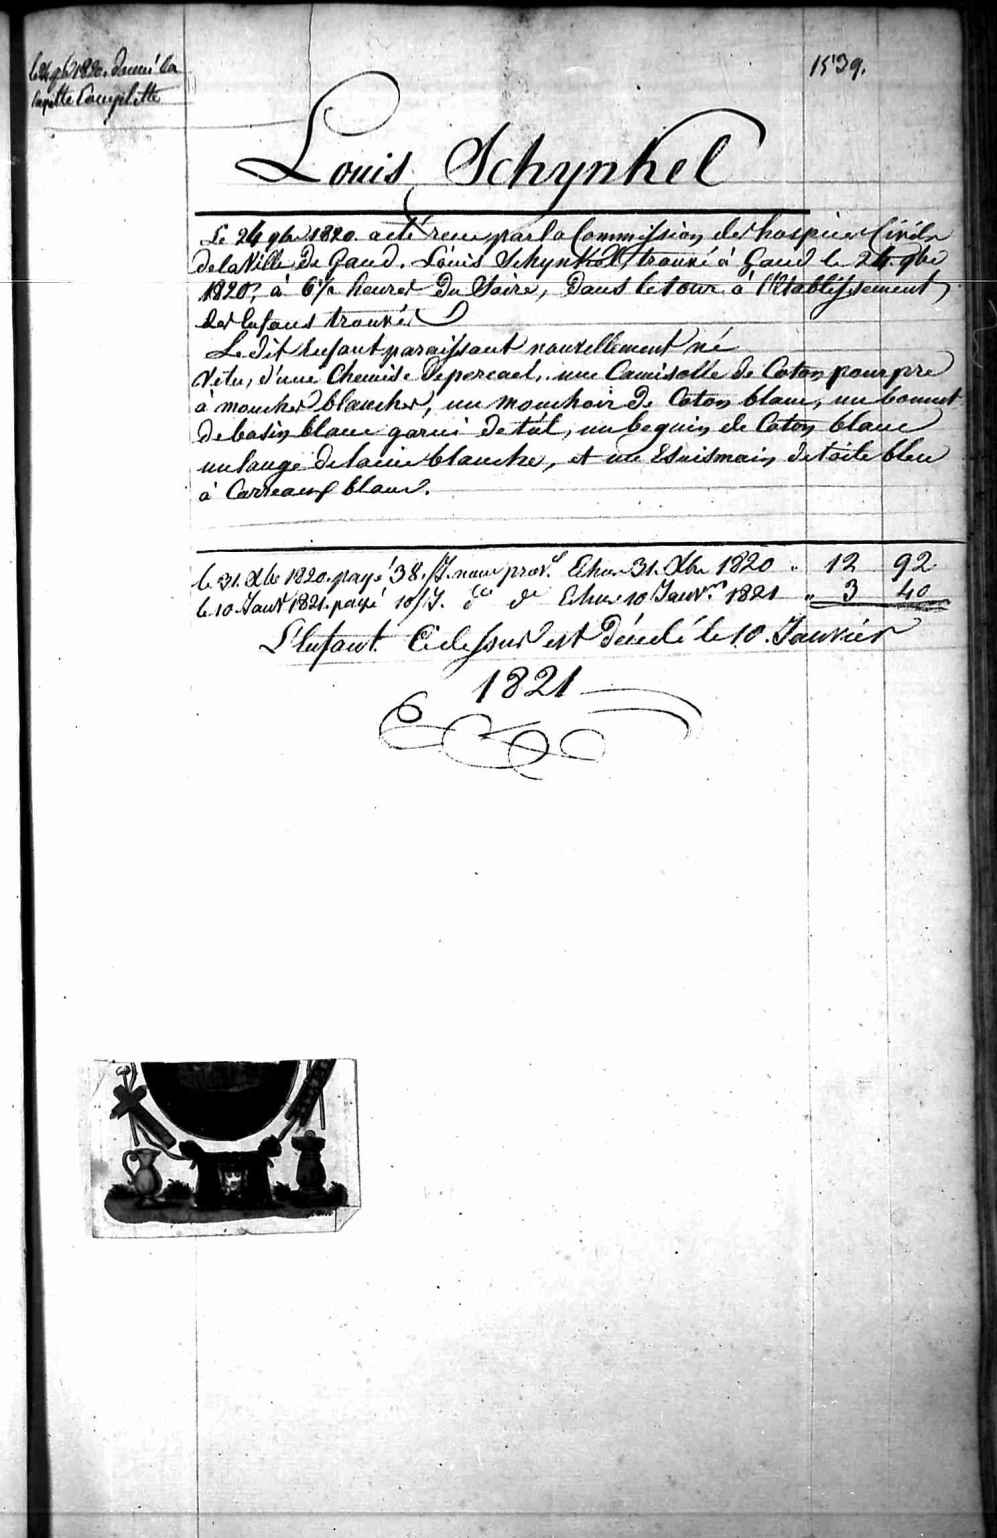 le 24 9bre 1820. donné la
layette Complette
1539.
Louis Schynkel
Le 24 9bre 1820. a été reçu par la Commission des hospices Civils
de la Ville de Gand. Louis Schynkel, trouvé à Gand le 24. 9bre
1820, à 6 ½ heures du Soire, dans le tour à l'Etablissement
des Enfans trouvés
Le dit Enfant paraissant nouvellement né
Vêtu, d'une Chemise de percael, une Camisolle de Coton pourpre
à mouches blanches, un mouchoir de Coton blanc, un bonnet
de basin blanc garni de tul, un beguin de Coton blanc
un lange de laine blanche, et un Esuismain de toile bleu
à Carreaux blanc.
le 31. Xbre 1820. payé 38./J. nour prov.l Echu 31. Xbre 1820 " 12 92
le 10 Janvr 1821. payé 10/J. do do Echu 10 Janvr 1821 " 3 40
L'Enfant Cidessus est Décedé le 10. Janvier
1821